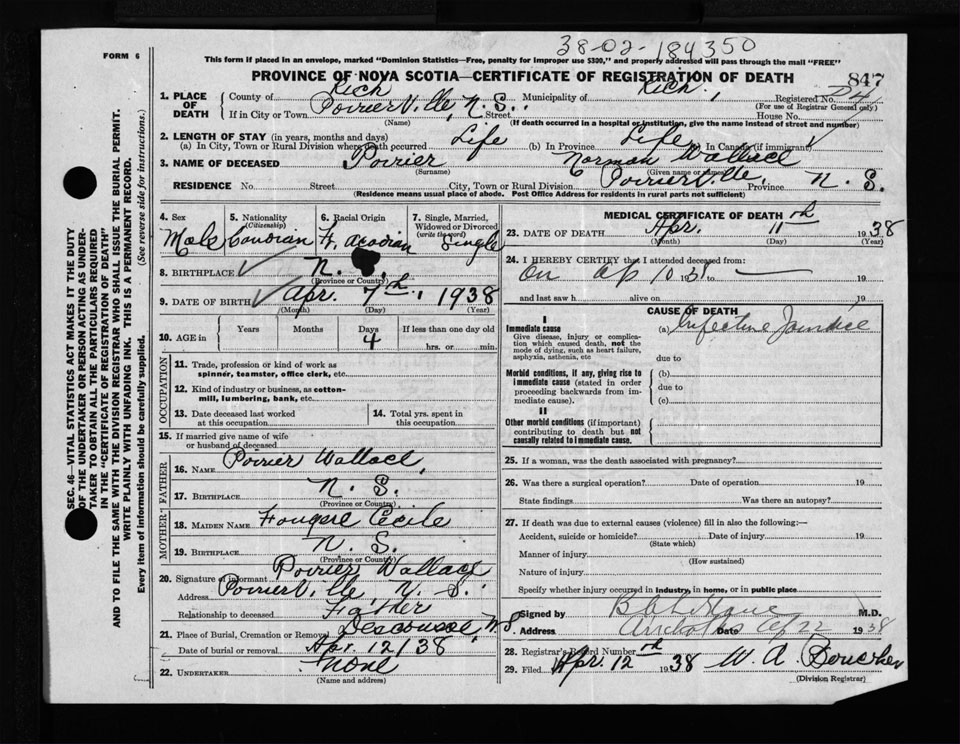 38-02-184350
FORM 6
This form if placed in an envelope, marked "Dominion Statistics—Free, penalty for improper use $300," and properly addressed will pass through the mail "FREE"
PROVINCE OF NOVA SCOTIA—CERTIFICATE OF REGISTRATION OF DEATH
847
1. PLACE OF DEATH
County of Rich Municipality of Rich. Registered No.
(For use of Registrar General only)
If in City or Town Poirierville, N. S. Street House No.
(Name) (If death occurred in a hospital or institution, give the name instead of street and number)
2. LENGTH OF STAY (in years, months and days)
(a) In City, Town or Rural Division where death occurred Life (b) In Province Life (c) In Canada (if immigrant)
3. NAME OF DECEASED Poirier Norman Wallace
(Surname) (Given name or names)
RESIDENCE No. Street City, Town or Rural Division Poirierville, Province N. S.
(Residence means usual place of abode. Post Office Address for residents in rural parts not sufficient)
4. Sex 5. Nationality (Citizenship) 6. Racial Origin 7. Single, Married, Widowed or Divorced (write the word)
Male Canadian Fr. Acadian Single
8. BIRTHPLACE N. S.
(Province or Country)
9. DATE OF BIRTH Apr. 7th, 1938
(Month) (Day) (Year)
10. AGE in Years Months Days If less than one day
4 hrs. or min.
OCCUPATION
11. Trade, profession or kind of work as spinner, teamster, office clerk, etc.
12. Kind of industry or business, as cotton-mill, lumbering, bank, etc.
13. Date deceased last worked at this occupation
14. Total yrs. spent in this occupation
15. If married give name of wife or husband of deceased
FATHER
16. NAME Poirier Wallace,
17. BIRTHPLACE N. S.
(Province or Country)
MOTHER
18. MAIDEN NAME Fougere Cecile
19. BIRTHPLACE N. S.
(Province or Country)
20. Signature of informant Poirier Wallace
Address Poirierville, N. S.
Relationship to deceased Father
21. Place of Burial, Cremation or Removal Descousse, N. S
Date of burial or removal Apr. 12/38
22. UNDERTAKER none
(Name and address)
MEDICAL CERTIFICATE OF DEATH
23. DATE OF DEATH Apr. 11th 1938
(Month) (Day) (Year)
24. I HEREBY CERTIFY that I attended deceased from:
On Ap 10 1938 to — 19
and last saw h alive on 19
CAUSE OF DEATH
I
Immediate cause (a) Infective Jaundice
Give disease, injury or complication which caused death, not the mode of dying, such as heart failure, asphyxia, asthenia, etc
due to
Morbid conditions, if any, giving rise to immediate cause (stated in order proceeding backwards from immediate cause).
(b)
due to
(c)
II
Other morbid conditions (if important) contributing to death but not causally related to immediate cause.
25. If a woman, was the death associated with pregnancy?
26. Was there a surgical operation? Date of operation 19
State findings Was there an autopsy?
27. If death was due to external causes (violence) fill in also the following:—
Accident, suicide or homicide? Date of injury 19
(State which)
Manner of injury
(How sustained)
Nature of injury
Specify whether injury occurred in industry, in home, or in public place
Signed by M.D.
Address Date 22 1938
28. Registrar's Record Number
29. Filed Apr. 12th 1938 W. A. Boucher
(Division Registrar)
SEC. 46—VITAL STATISTICS ACT MAKES IT THE DUTY
OF THE UNDERTAKER OR PERSON ACTING AS UNDER-
TAKER TO OBTAIN ALL THE PARTICULARS REQUIRED
IN THE "CERTIFICATE OF REGISTRATION OF DEATH"
AND TO FILE THE SAME WITH THE DIVISION REGISTRAR WHO SHALL ISSUE THE BURIAL PERMIT.
WRITE PLAINLY WITH UNFADING INK. THIS IS A PERMANENT RECORD.
Every item of information should be carefully supplied. (See reverse side for instructions.)